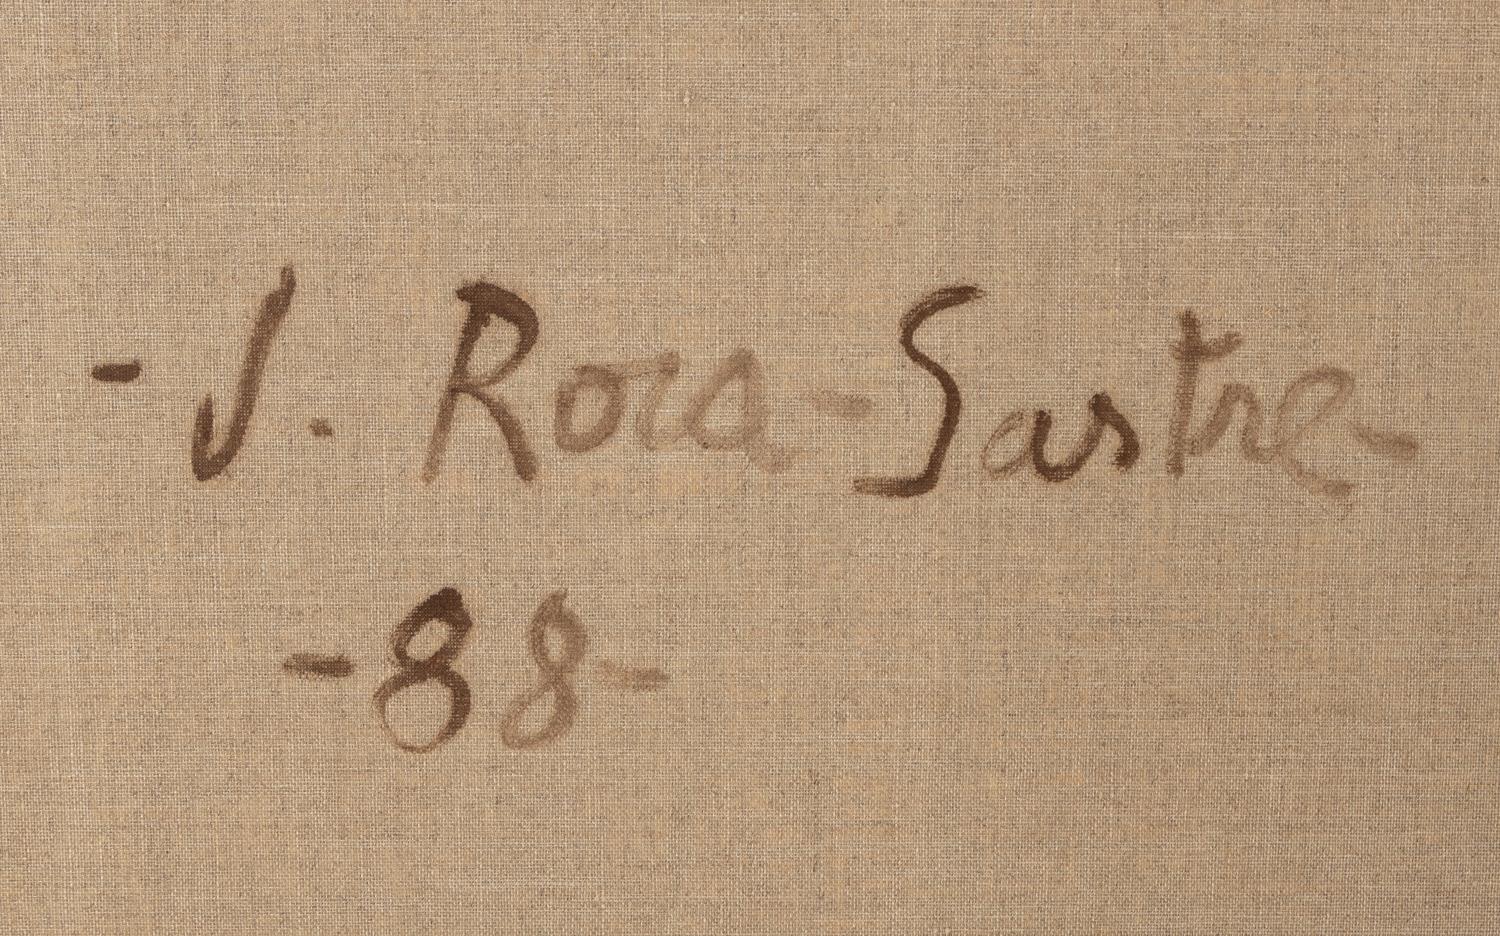 - J. Roca-Sastre
-88-